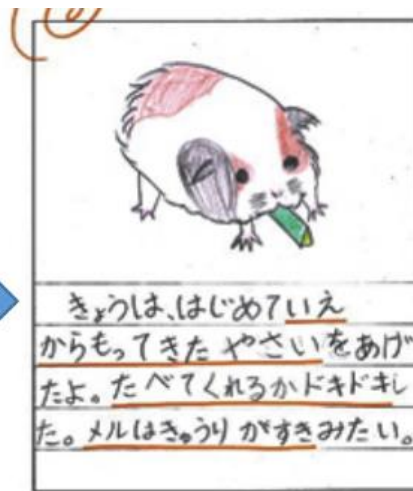 きょうは、はじめていえ
からもってきた やさいをあげ
たよ。たべてくれるかドキドキし
た。メルはきゅうり がすきみたい。